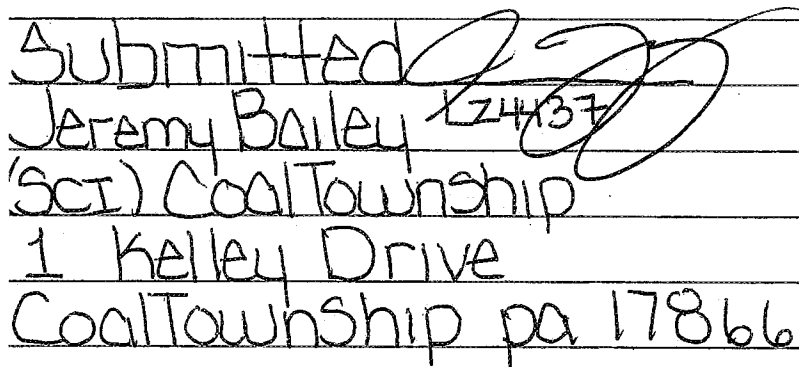 Submitted
Jeremy Bailey LZ4437
(SCI) CoalTownship
1 Kelley Drive
CoalTownship pa 17866